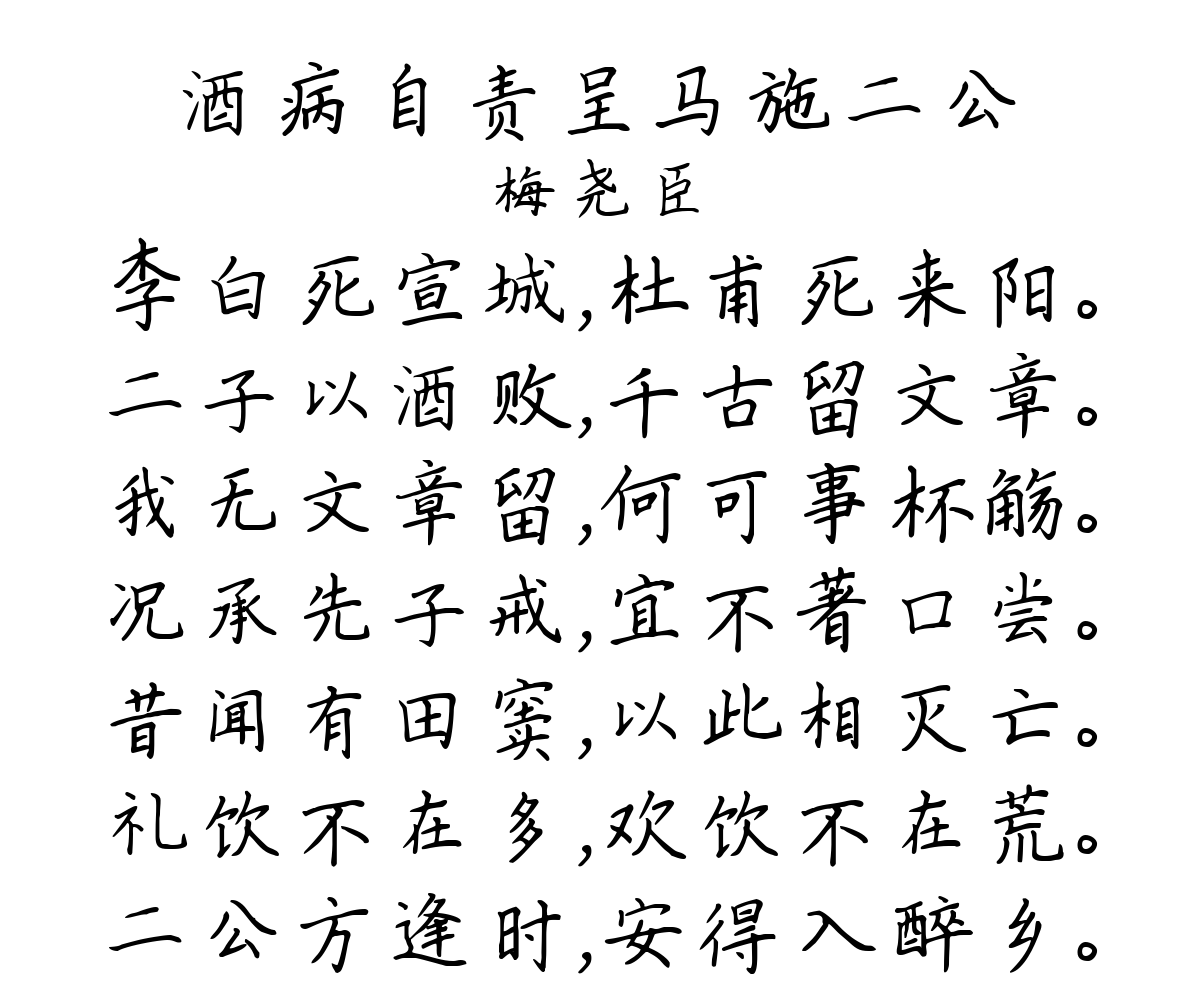 酒病自责呈马施二公
梅尧臣
李白死宣城,杜甫死来阳。
二子以酒败,千古留文章。
我无文章留,何可事杯觞。
况承先子戒,宜不著口尝。
昔闻有田窦,以此相灭亡。
礼饮不在多,欢饮不在荒。
二公方逢时,安得入醉乡。